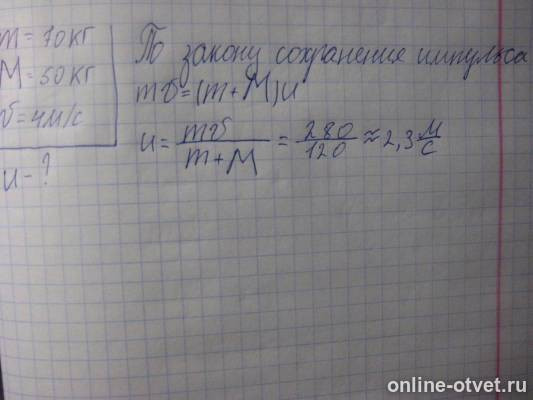 m = 70 кг
M = 50 кг
υ = 4 м/с
u - ?
По закону сохранения импульса
mυ = (m + M)u
u = mυ / m + M = 280 / 120 ≈ 2,3 м/с
online-otvet.ru